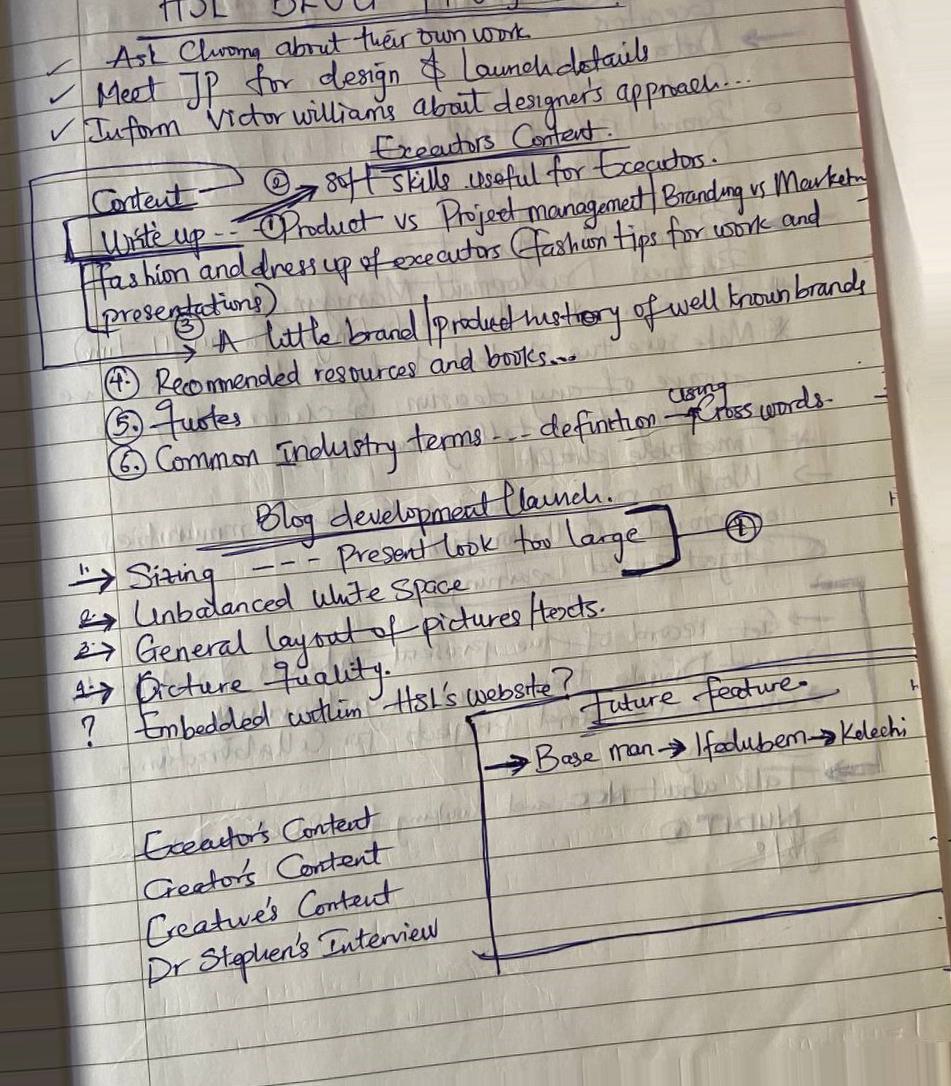 HSL
Ask Chroma about their own work
Meet JP for design & Launch details
Inform Victor williams about designers approach...
Executors Content.
Content ② → soft skills useful for Executors.
Write up -- ① Product vs Project management | Branding vs Marketin
fashion and dress up of executors (fashion tips for work and
presentations)
③ A little brand/product history of well known brands
④. Recommended resources and books...
⑤. Quotes
⑥. Common Industry terms --- definition → using Cross words.
Blog development & launch.
1. → Sizing --- Present look too large ①
2. → Unbalanced white space
3. → General layout of pictures/texts.
4. → Picture Quality.
? Embedded within HSL's website?
Future feature.
→ Base man → Ifedubem → Kelechi
Executor's Content
Creator's Content
Creative's Content
Dr Stephen's Interview